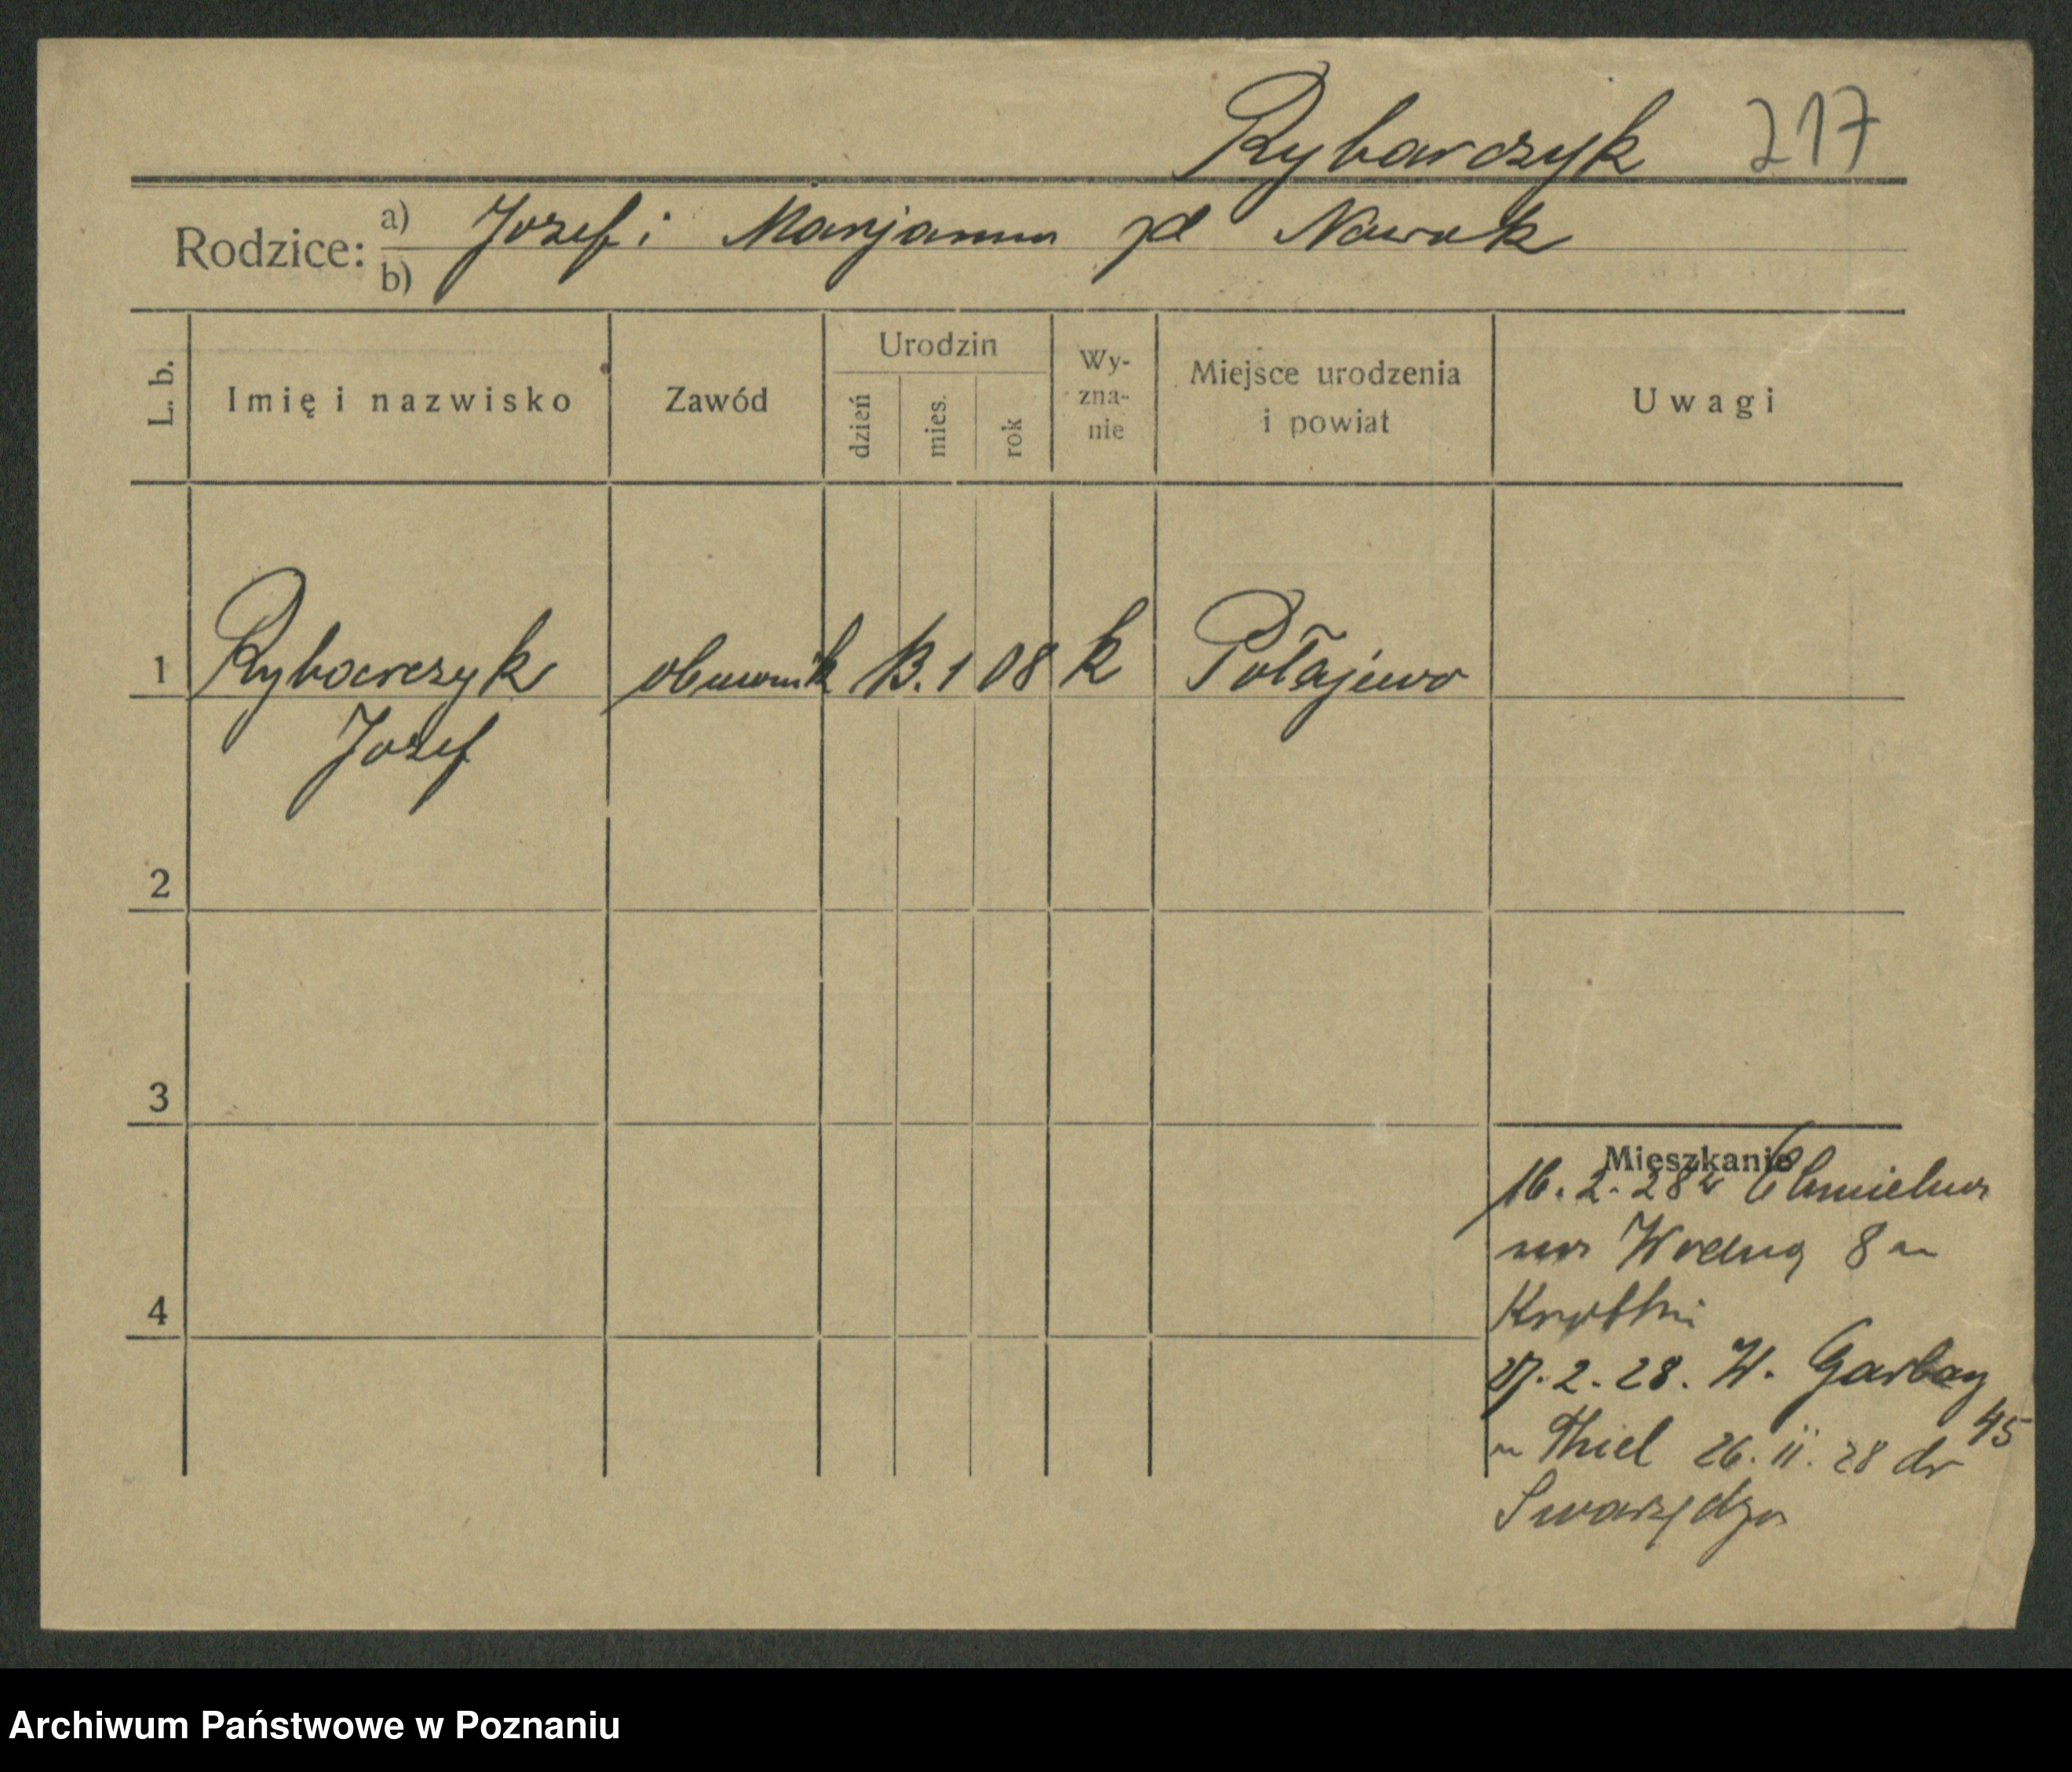 Rybarczyk 217
Rodzice: a) Jozef i Marjanna zd Nowak
b)
L. b. Imię i nazwisko Zawód Urodzin dzień mies. rok Wy-zna-nie Miejsce urodzenia i powiat Uwagi
1 Rybarczyk obuwnik 13. 1 08 k Połajewo
Jozef
2
3
Mieszkanie
16. 2. 28 z
Wodną 8
4
27. 2. 28. W. Garbary 45
Thiel 26. II. 28 do
Swarzędza
Archiwum Państwowe w Poznaniu